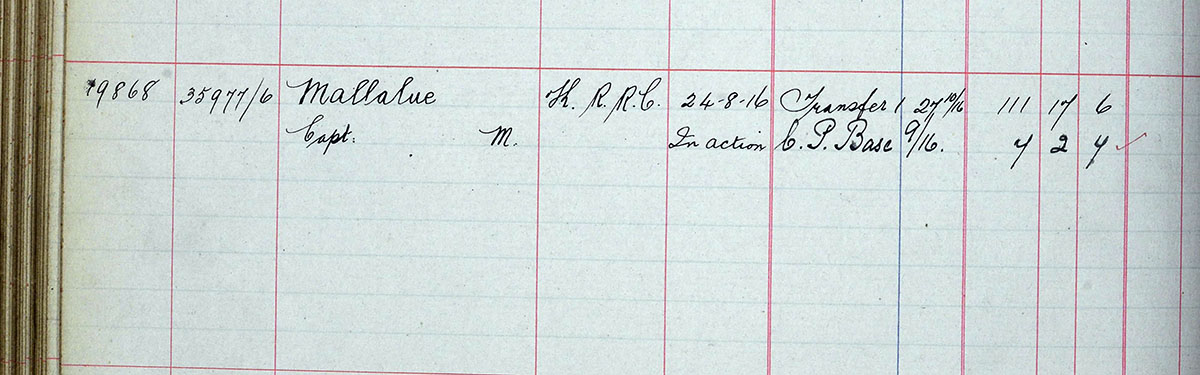 79868 35977/6 Mallalue K. R. R. C. 24-8-16 Transfer 1 27 10/16 111 17 6
Capt: M. In action C. P. Base 9/16. 4 2 4 ✓